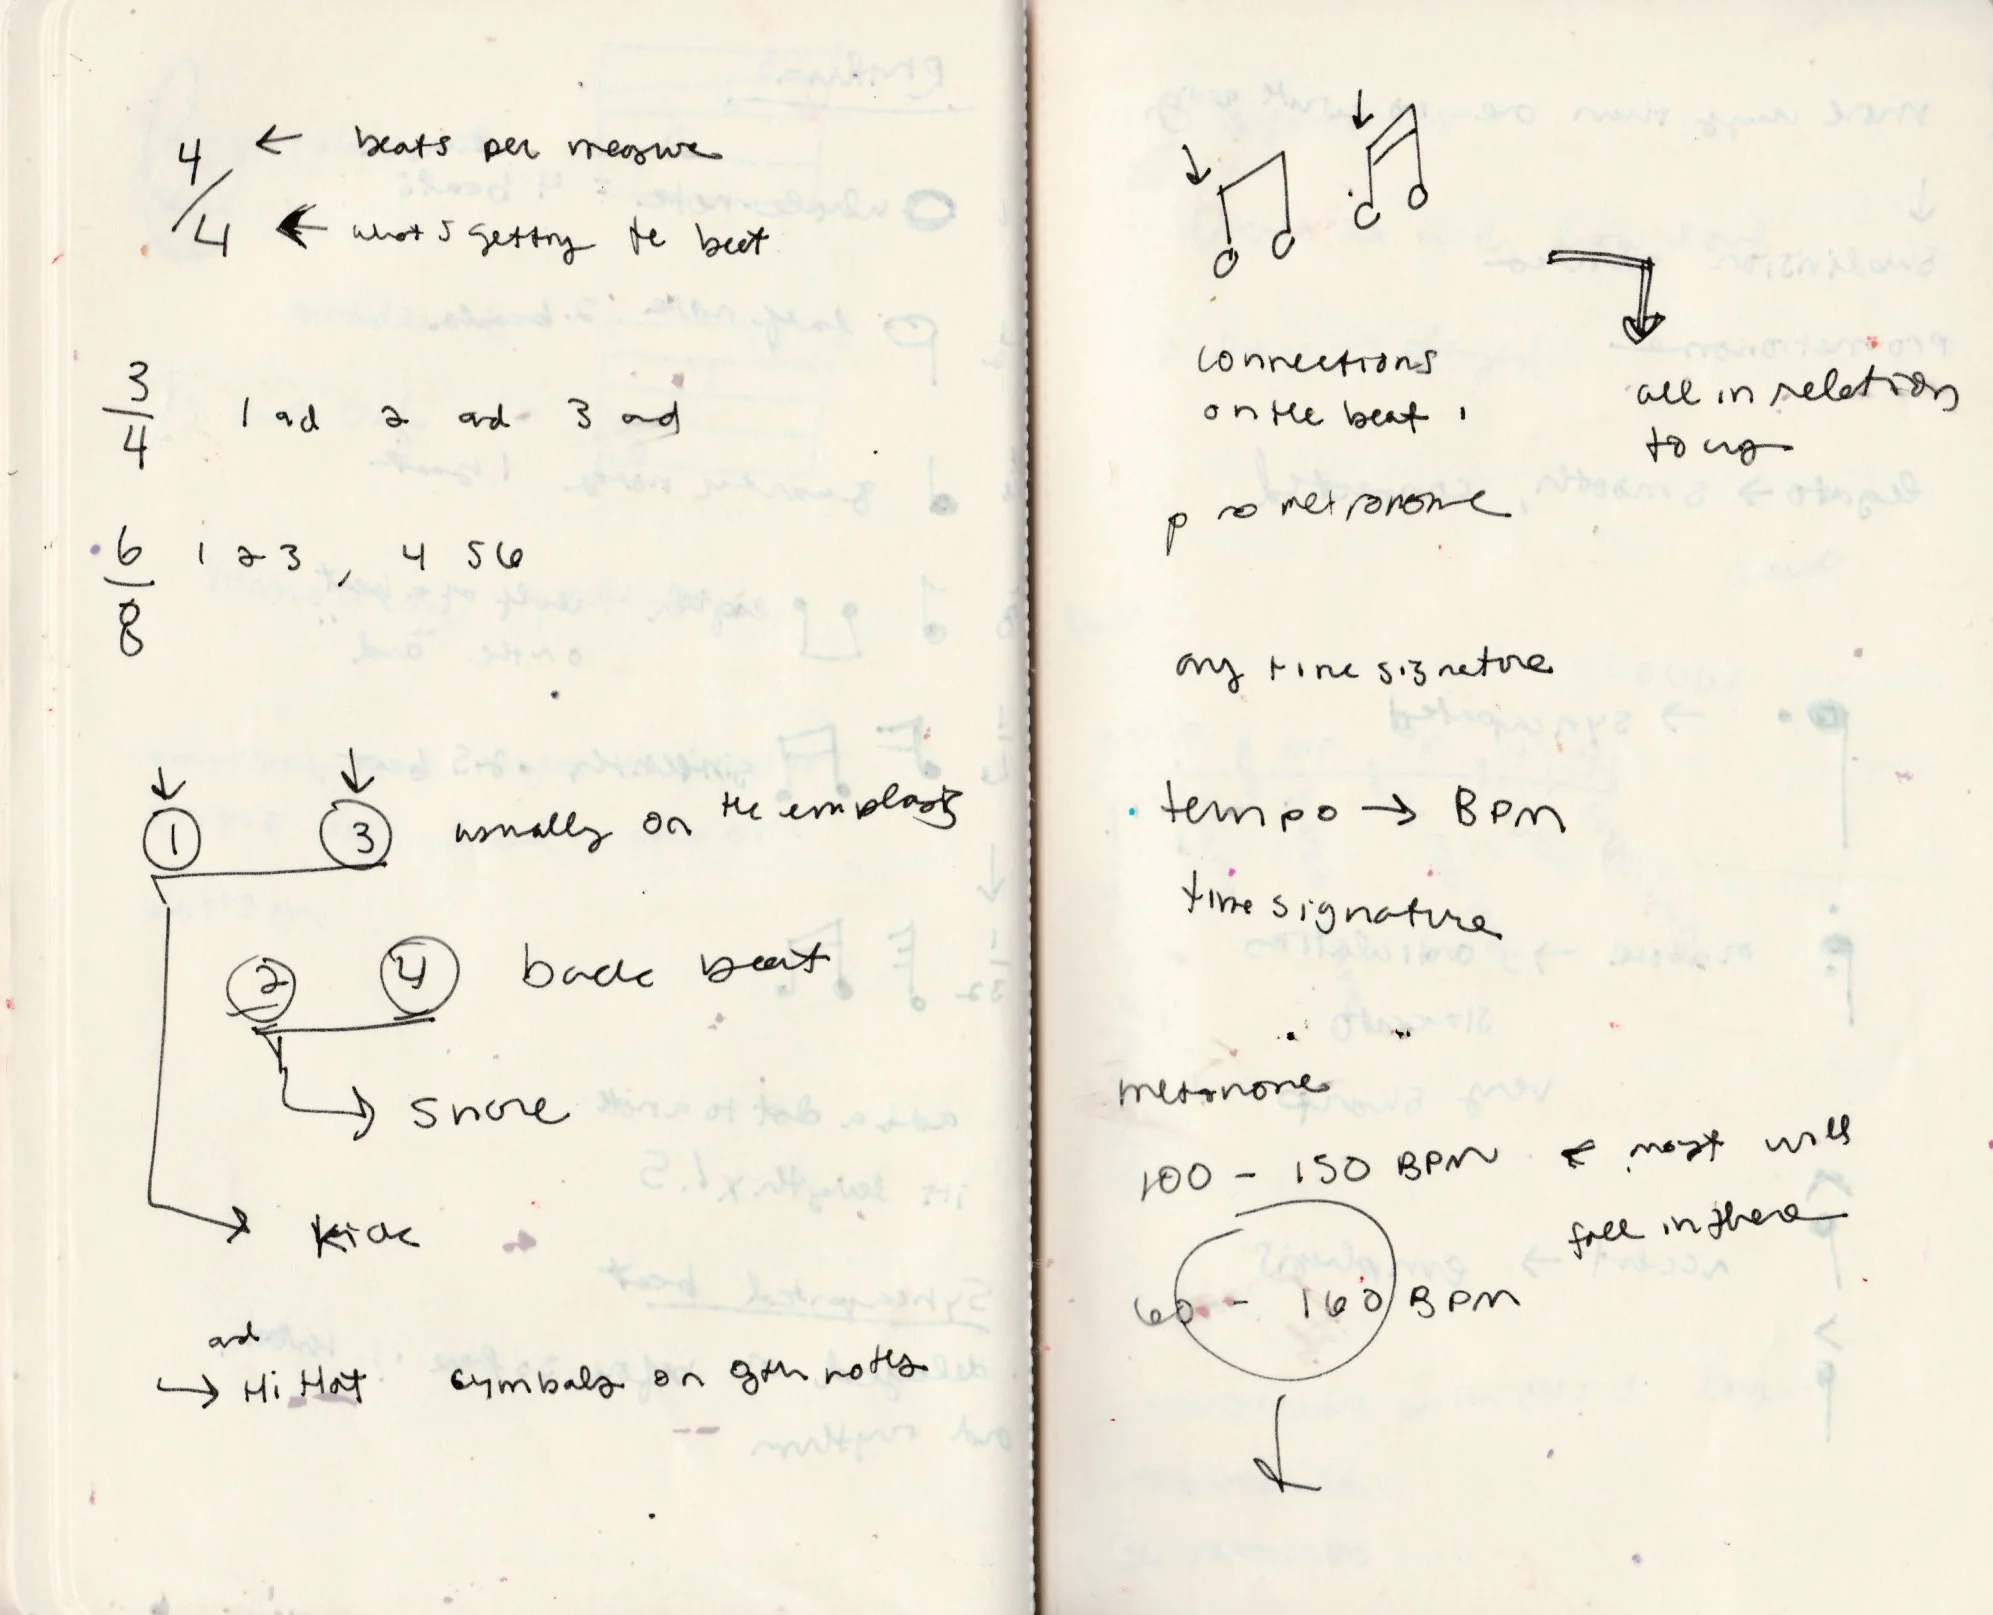 4 ← beats per measure
4 ← what's getting the beat
3
4 1 ad 2 ad 3 and
6
8 1 2 3, 4 5 6
1 3 usually on the emphasis
2 4 back beat
→ snare
→ kick
and
→ Hi Hat cymbals on 8th notes
connections
on the beat
all in relation
to
pro metronome
any time signature
tempo → BPM
time signature
metronome
100 - 150 BPM ← most will
fall in there
60 - 160 BPM